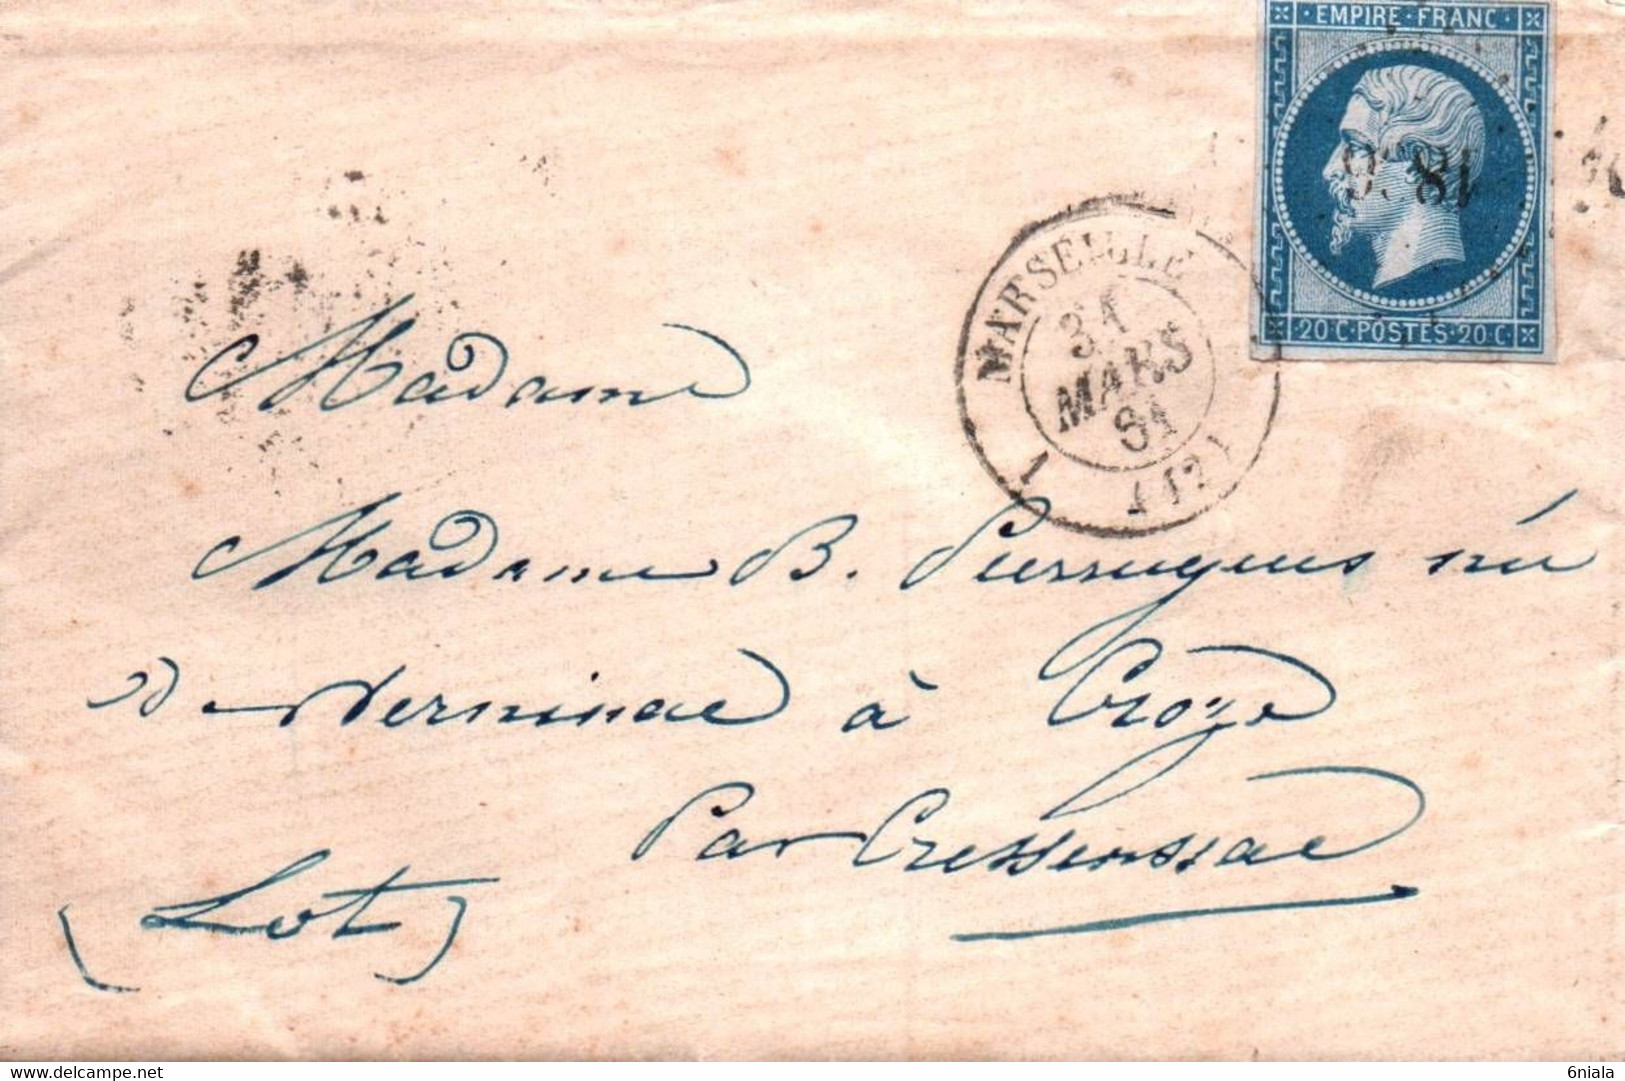 EMPIRE · FRANC ·
20 C · POSTES · 20 C ·
MARSEILLE
31
MARS
61
1 (12)
Madame
Madame B. Pierrugues née
de Verninac à Croze
Par Cressensac
(Lot)
6niala